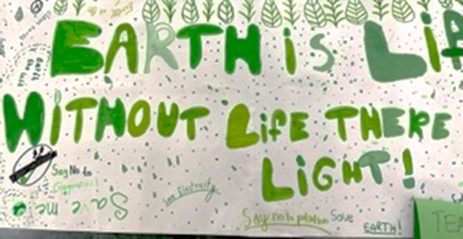 EARTH is Lif
WITHOUT LifE THERE
LiGHT!
Say No to
Save me
Save Electricity
Say no to pollution Save
EARTH!
TEA